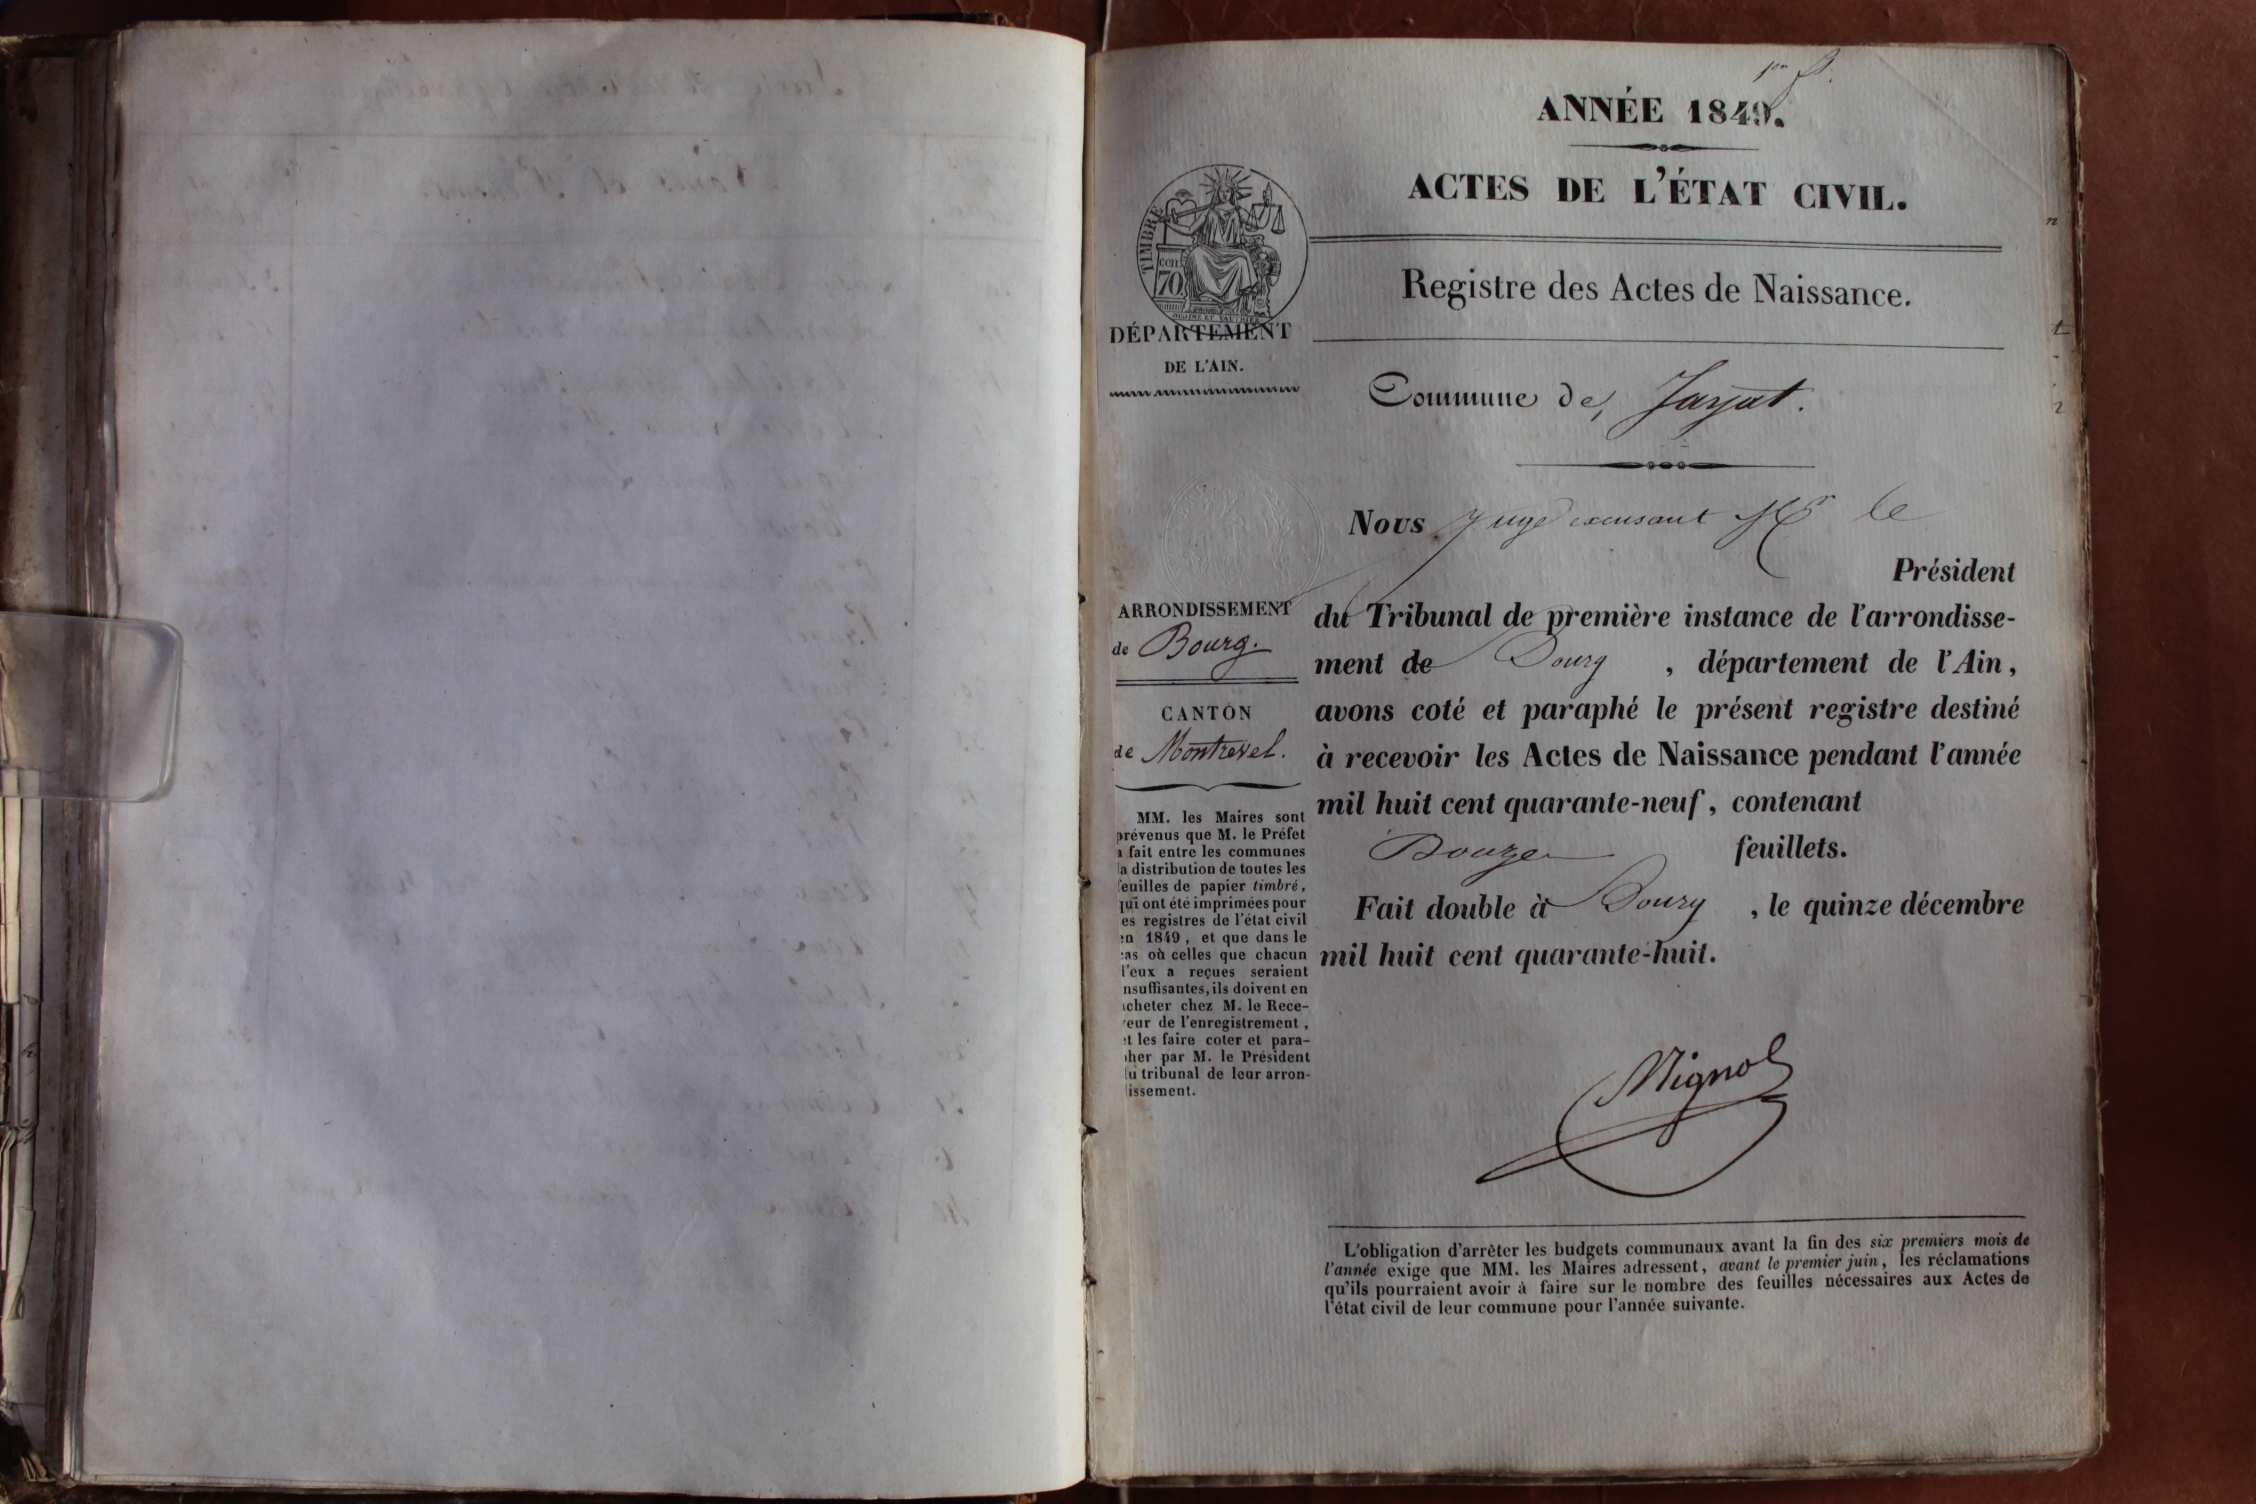 ANNÉE 1849.
ACTES DE L'ÉTAT CIVIL.
Registre des Actes de Naissance.
TIMBRE
70
DÉPARTEMENT
DE L'AIN.
Commune de Jayat.
Nous Juge excusant Mr le
Président
du Tribunal de première instance de l'arrondisse-
ment de Bourg , département de l'Ain,
avons coté et paraphé le présent registre destiné
à recevoir les Actes de Naissance pendant l'année
mil huit cent quarante-neuf, contenant
Douze feuillets.
Fait double à Bourg , le quinze décembre
mil huit cent quarante-huit.
Mignot
ARRONDISSEMENT
de Bourg.
CANTON
de Montrevel.
MM. les Maires sont
prévenus que M. le Préfet
a fait entre les communes
la distribution de toutes les
feuilles de papier timbré,
qui ont été imprimées pour
es registres de l'état civil
en 1849, et que dans le
cas où celles que chacun
d'eux a reçues seraient
nsuffisantes, ils doivent en
acheter chez M. le Rece-
veur de l'enregistrement,
et les faire coter et para-
pher par M. le Président
du tribunal de leur arron-
issement.
L'obligation d'arrêter les budgets communaux avant la fin des six premiers mois de
l'année exige que MM. les Maires adressent, avant le premier juin, les réclamations
qu'ils pourraient avoir à faire sur le nombre des feuilles nécessaires aux Actes de
l'état civil de leur commune pour l'année suivante.